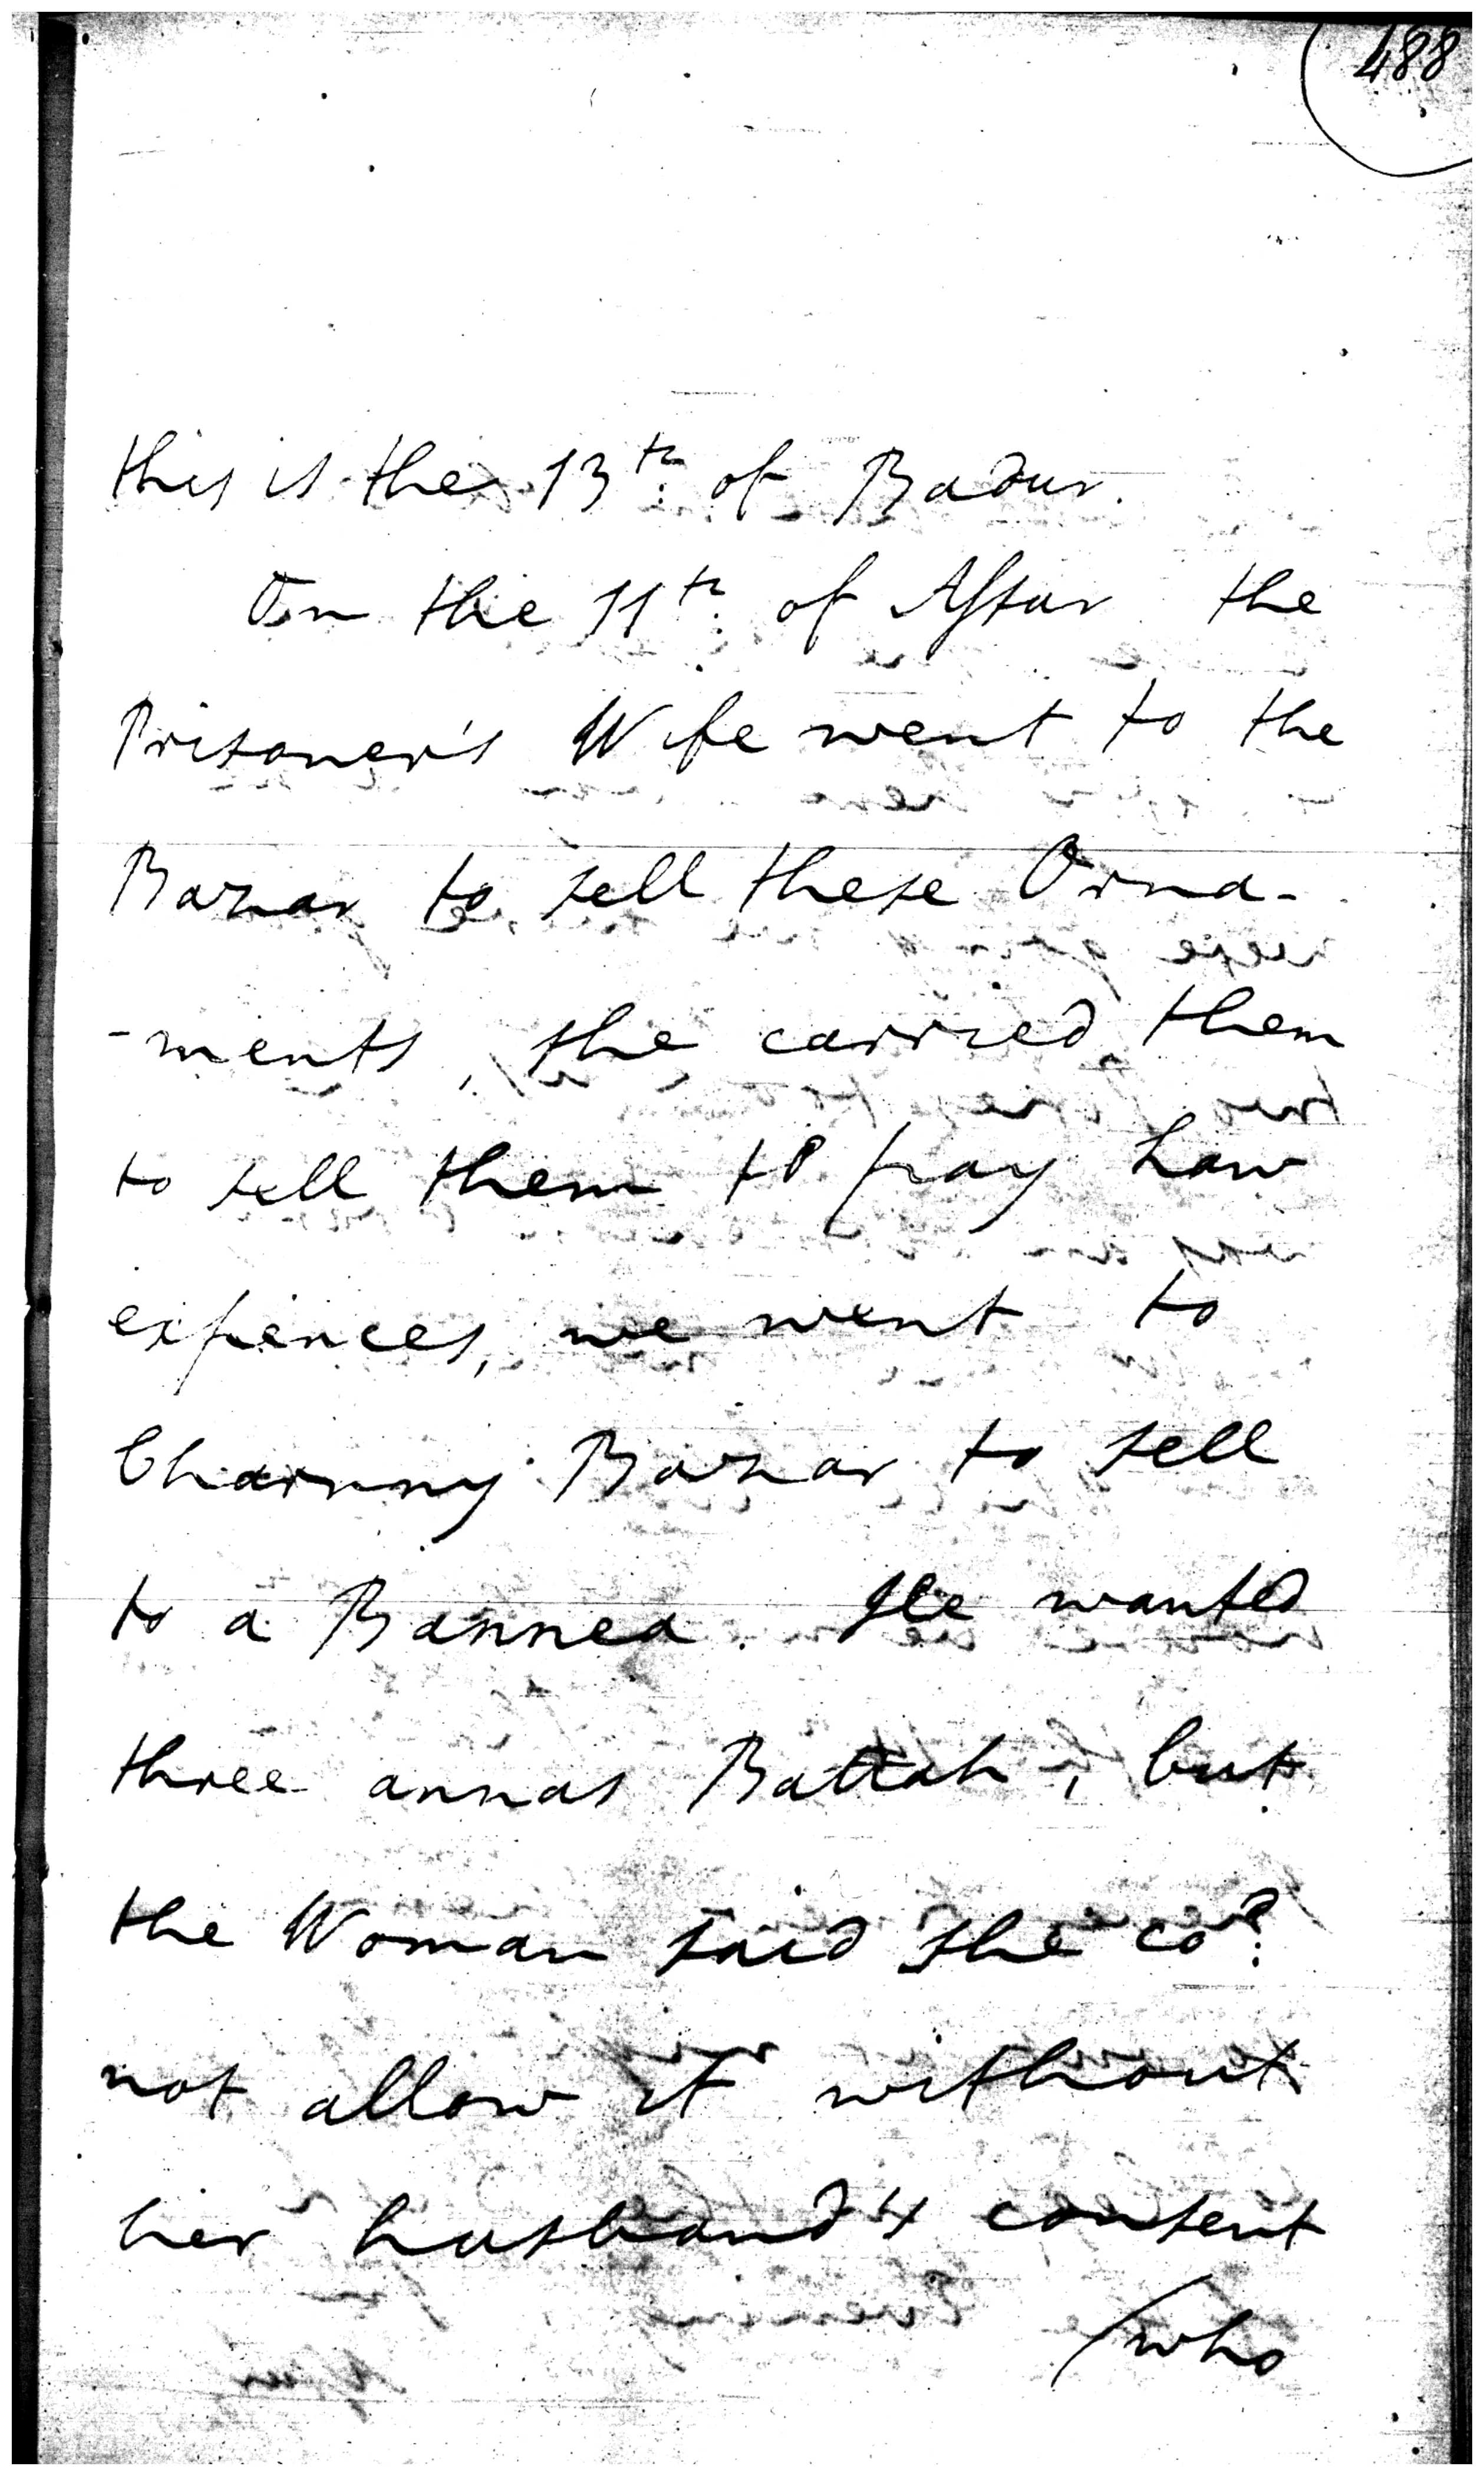 488
this is the 13th of Badur.
On the 11th of Assar the
Prisoner's Wife went to the
Bazar to sell these Orna-
-ments, she carried them
to sell them to pay Law
expences, we went to
Charnny Bazar to sell
to a Bannea. He wanted
three annas Battah, but
the Woman said she cod.
not allow it without
her husband's consent
/who